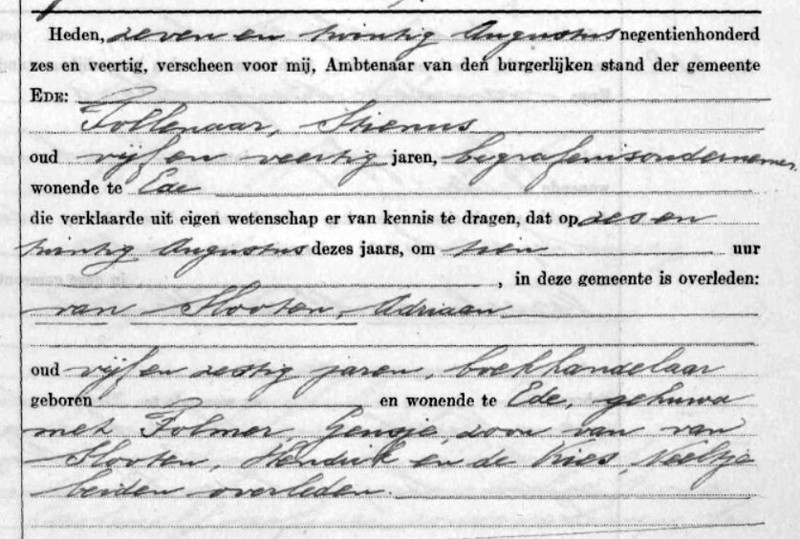 Heden, zeven en twintig Augustus negentienhonderd
zes en veertig, verscheen voor mij, Ambtenaar van den burgerlijken stand der gemeente
EDE:
Tollenaar, Stienus
oud vijf en veertig jaren, begrafenisondernemer,
wonende te Ede
die verklaarde uit eigen wetenschap er van kennis te dragen, dat op zes en
twintig Augustus dezes jaars, om tien uur
, in deze gemeente is overleden:
van Slooten, Adriaan
oud vijf en zestig jaren, boekhandelaar
geboren en wonende te Ede, gehuwd
met Folmer, Gensje, zoon van van
Slooten, Hendrik en de Kies, Neeltje
beiden overleden.